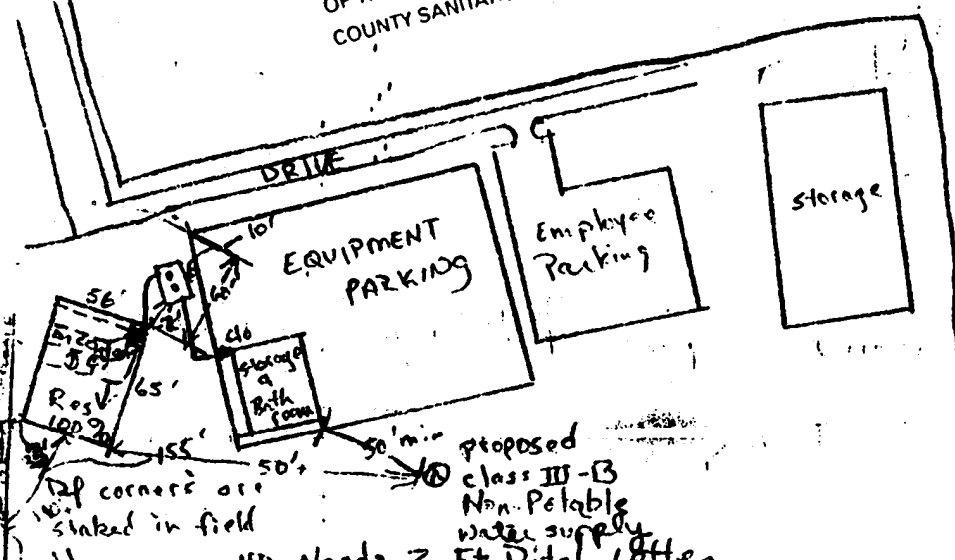 COUNTY SANITAR
DRIVE
10'
EQUIPMENT
PARKING
Employee
Parking
storage
56'
60'
65'
Res
100%
C/o
storage
&
Bath
room
155'
50'+
50' min
proposed
class III-B
Non-Potable
water supply
DF corners are
staked in field
Needs 2 Ft